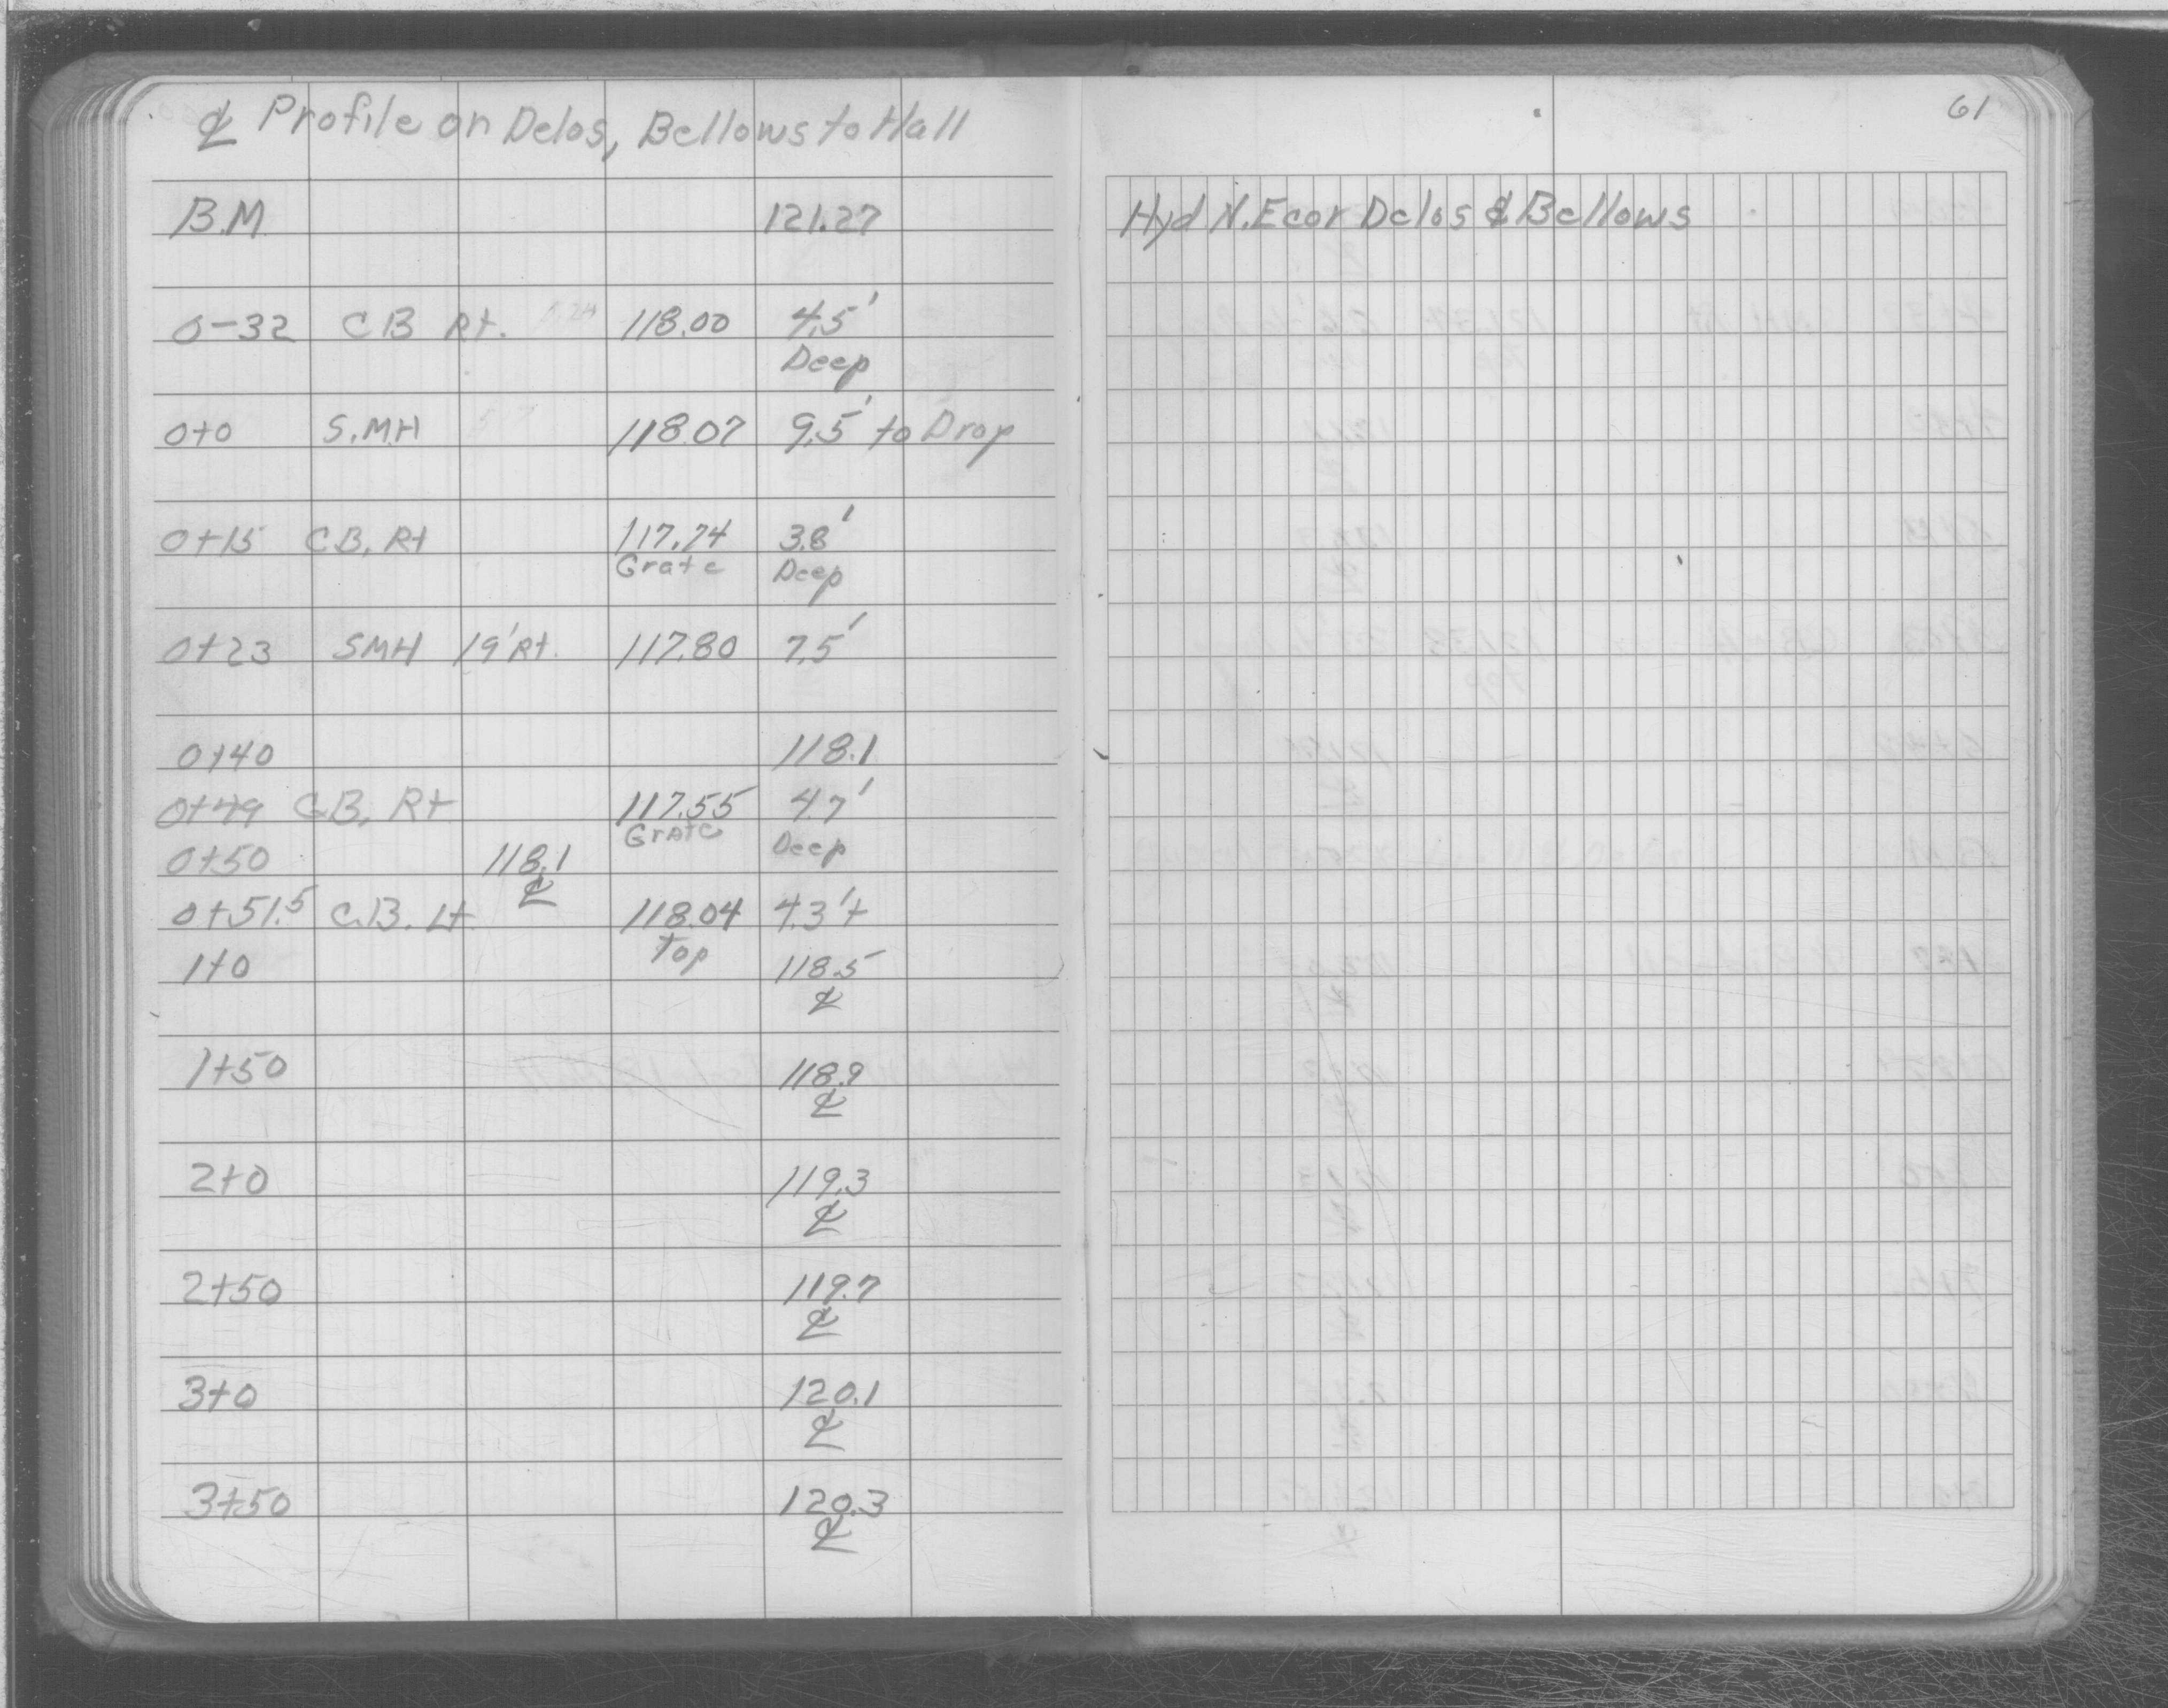 ℄ Profile on Delos, Bellows to Hall
61
B.M 121.27 Hyd N.E cor Delos & Bellows
0-32 CB Rt. 118.00 4.5'
Deep
0+0 S.M.H 118.07 9.5' to Drop
0+15 C.B, Rt 117.74 3.8'
Grate Deep
0+23 SMH 19' Rt. 117.80 7.5'
0+40 118.1
0+49 C.B, Rt 117.55 4.7'
Grate Deep
0+50 118.1
℄
0+51.5 C.B. Lt 118.04 4.3'+
Top
1+0 118.5
℄
1+50 118.9
℄
2+0 119.3
℄
2+50 119.7
℄
3+0 120.1
℄
3+50 120.3
℄